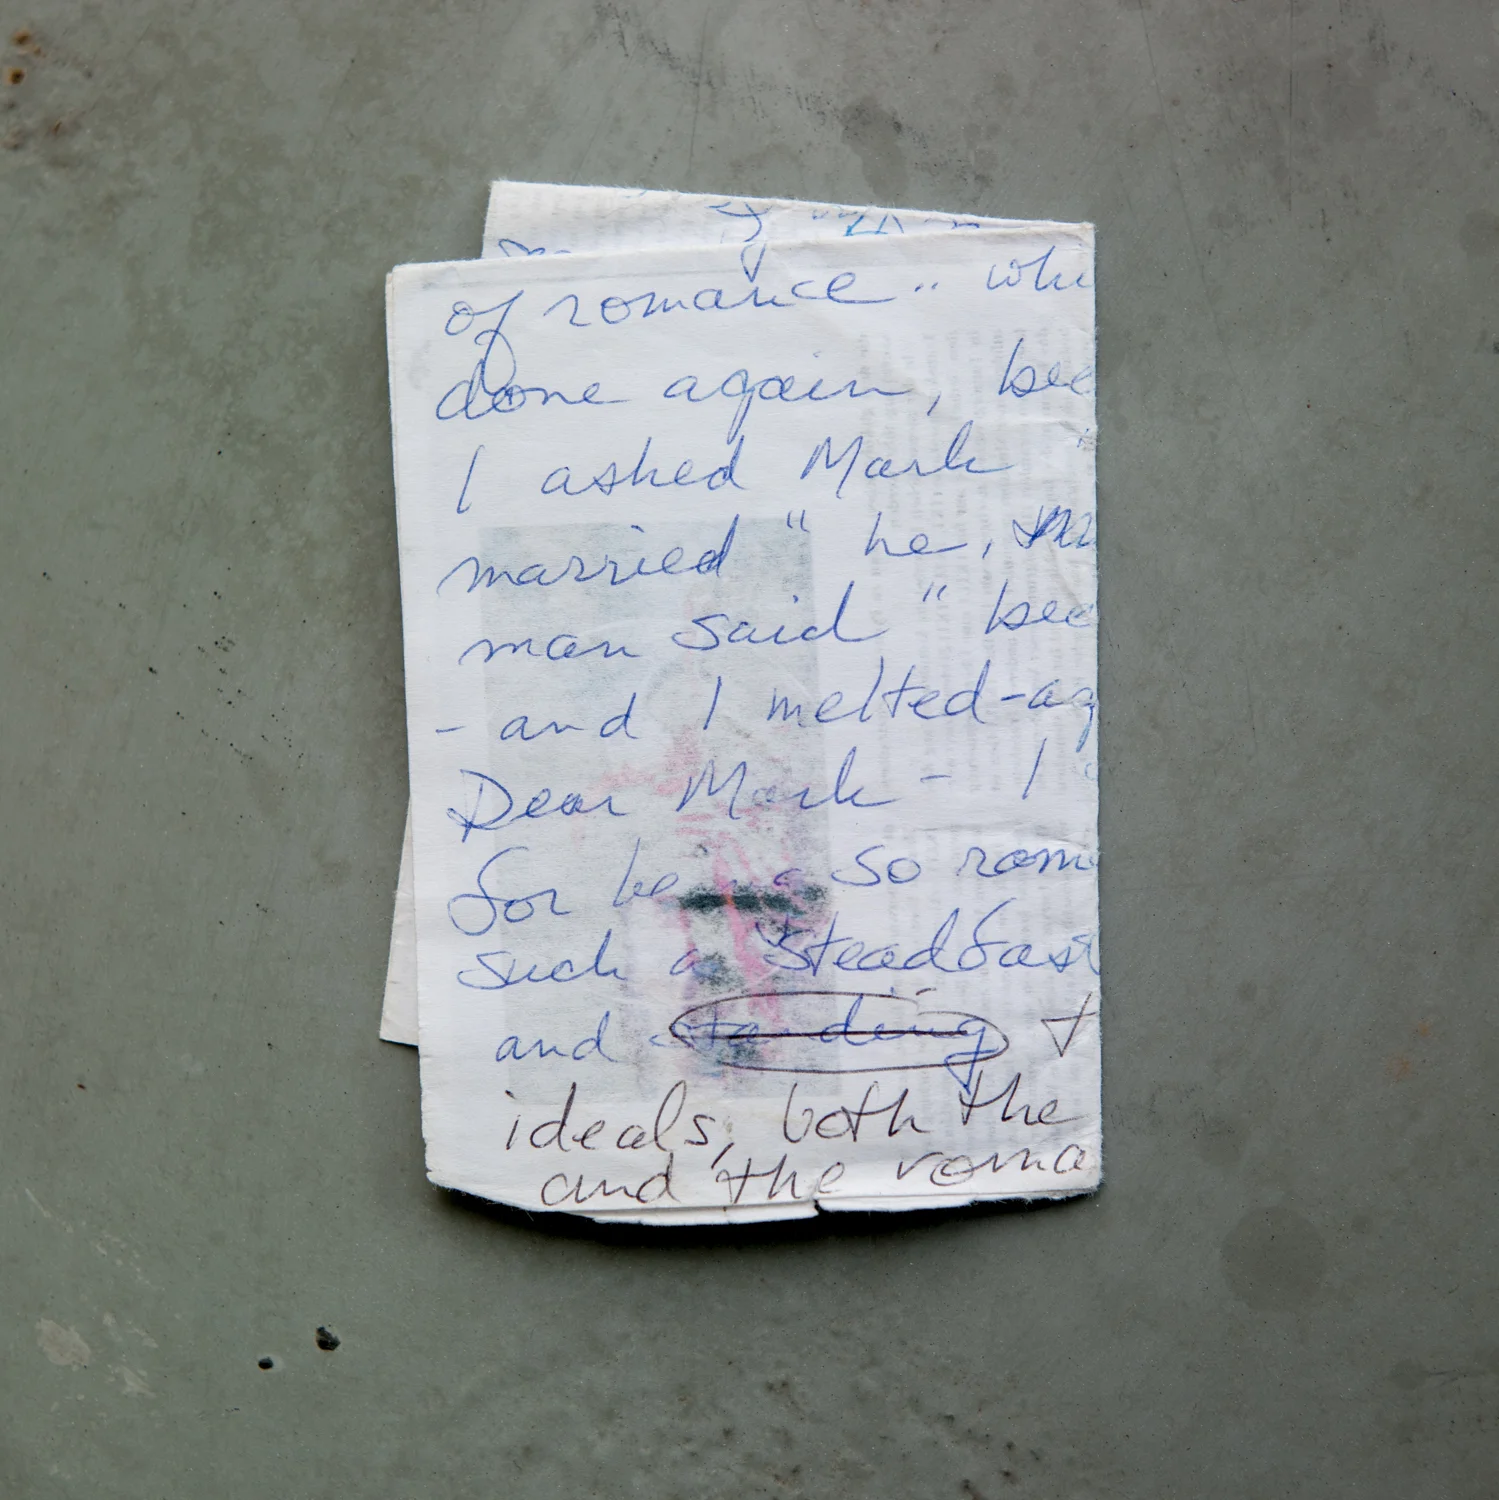 of romance .. whi
done again, bec
I asked Mark "
married" he,
man said " bec
- and I melted - ag
Dear Mark - I
for being so rom
such a steadfast
and standing
ideals, both the
and the roma